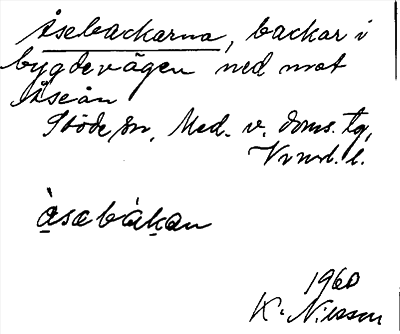 Åsebackarna, backar i
bygdevägen ned mot
Åseån
Stöde sn, Med. v. doms. tg,
Vnrl. l.
àsabàkan
1960
K. Nilsson